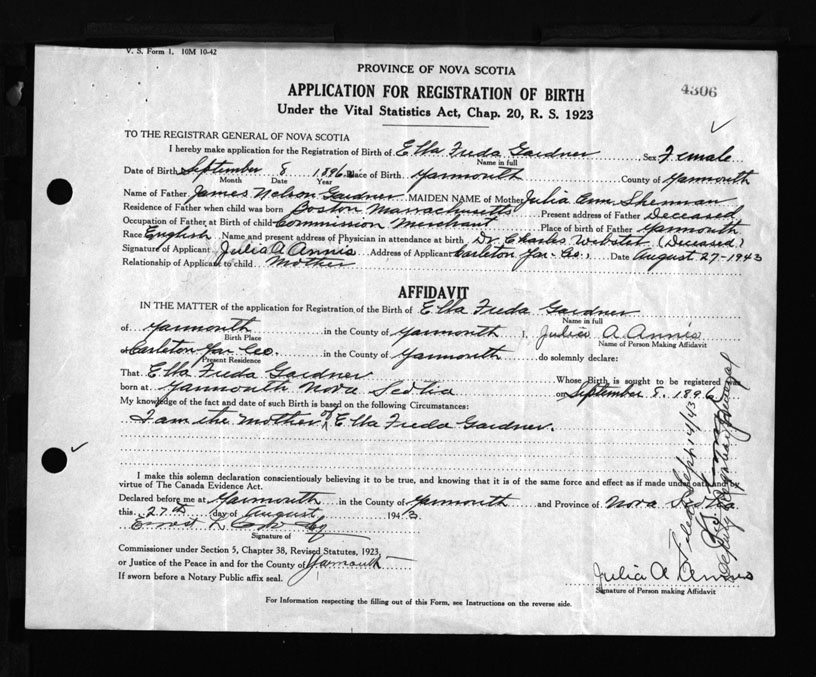 V. S. Form 1. 10M 10-42
PROVINCE OF NOVA SCOTIA
4306
APPLICATION FOR REGISTRATION OF BIRTH
Under the Vital Statistics Act, Chap. 20, R. S. 1923
TO THE REGISTRAR GENERAL OF NOVA SCOTIA
I hereby make application for the Registration of Birth of Etta Freda Gardner Sex Female
Name in full
Date of Birth September 8 1896 Place of Birth Yarmouth County of Yarmouth
Month Date Year
Name of Father James Nelson Gardner MAIDEN NAME of Mother Julia Ann Sherman
Residence of Father when child was born Boston Massachusetts Present address of Father Deceased
Occupation of Father at Birth of child Commission Merchant Place of birth of Father Yarmouth
Race English Name and present address of Physician in attendance at birth Dr. Charles Webster (Deceased)
Signature of Applicant Julia A Annis Address of Applicant Carleton Yar. Co., Date August 27-1943
Relationship of Applicant to child Mother
AFFIDAVIT
IN THE MATTER of the application for Registration of the Birth of Etta Freda Gardner
Name in full
of Yarmouth in the County of Yarmouth I, Julia A. Annis
Birth Place Name of Person Making Affidavit
of Carleton Yar Co. in the County of Yarmouth do solemnly declare:
Present Residence
That Etta Freda Gardner Whose Birth is sought to be registered was
born at Yarmouth Nova Scotia on September 8, 1896
My knowledge of the fact and date of such Birth is based on the following Circumstances:
I am the mother of Etta Freda Gardner.
I make this solemn declaration conscientiously believing it to be true, and knowing that it is of the same force and effect as if made under oath and by
virtue of The Canada Evidence Act.
Declared before me at Yarmouth in the County of Yarmouth and Province of Nova Scotia
this 27th day of August 1943
Signature of
Commissioner under Section 5, Chapter 38, Revised Statutes, 1923,
or Justice of the Peace in and for the County of Yarmouth
If sworn before a Notary Public affix seal.
Julia A Annis
Signature of Person making Affidavit
For Information respecting the filling out of this Form, see Instructions on the reverse side.
Filed Sept 14/43
Deputy Registrar General